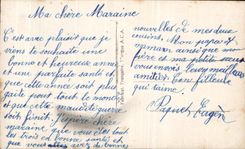 Ma chère Maraine
C'est avec plaisir que je
viens te souhaite une
bonne et heureuse année
et une parfaite santé et
que cette année soit plus
tout le monde
et que cette maudite guerre
soit finit. J'espère chère
maraine que vous êtes tout
les trois en bonne santé et
que vous avez de bonnes
nouvelles de mes deux
cousins. Mon papa et
maman ainsi que mon
frère et ma petite sœur
vous envois leurs meilleurs
amitiés. Ton filleul
qui t'aime.
Papuet